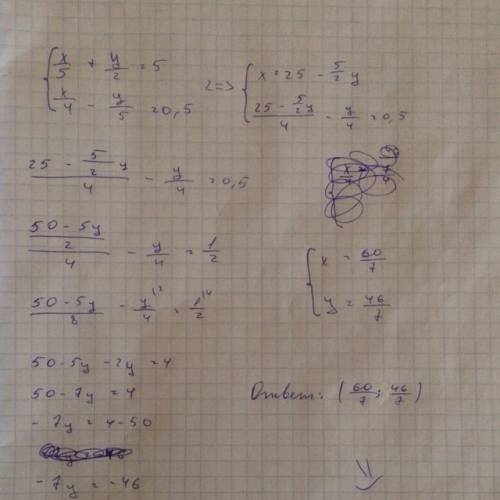 { x/5 + y/2 = 5
x/4 - y/5 = 0,5
<=> { x = 25 - 5/2 y
(25 - 5/2 y)/4 - y/4 = 0,5
(25 - 5/2 y)/4 - y/4 = 0,5
((50-5y)/2)/4 - y/4 = 1/2
(50-5y)/8 - y/4 = 1/2
50-5y-2y = 4
50-7y = 4
-7y = 4-50
-7y = -46
{ x = 60/7
y = 46/7
Ответ: (60/7; 46/7)